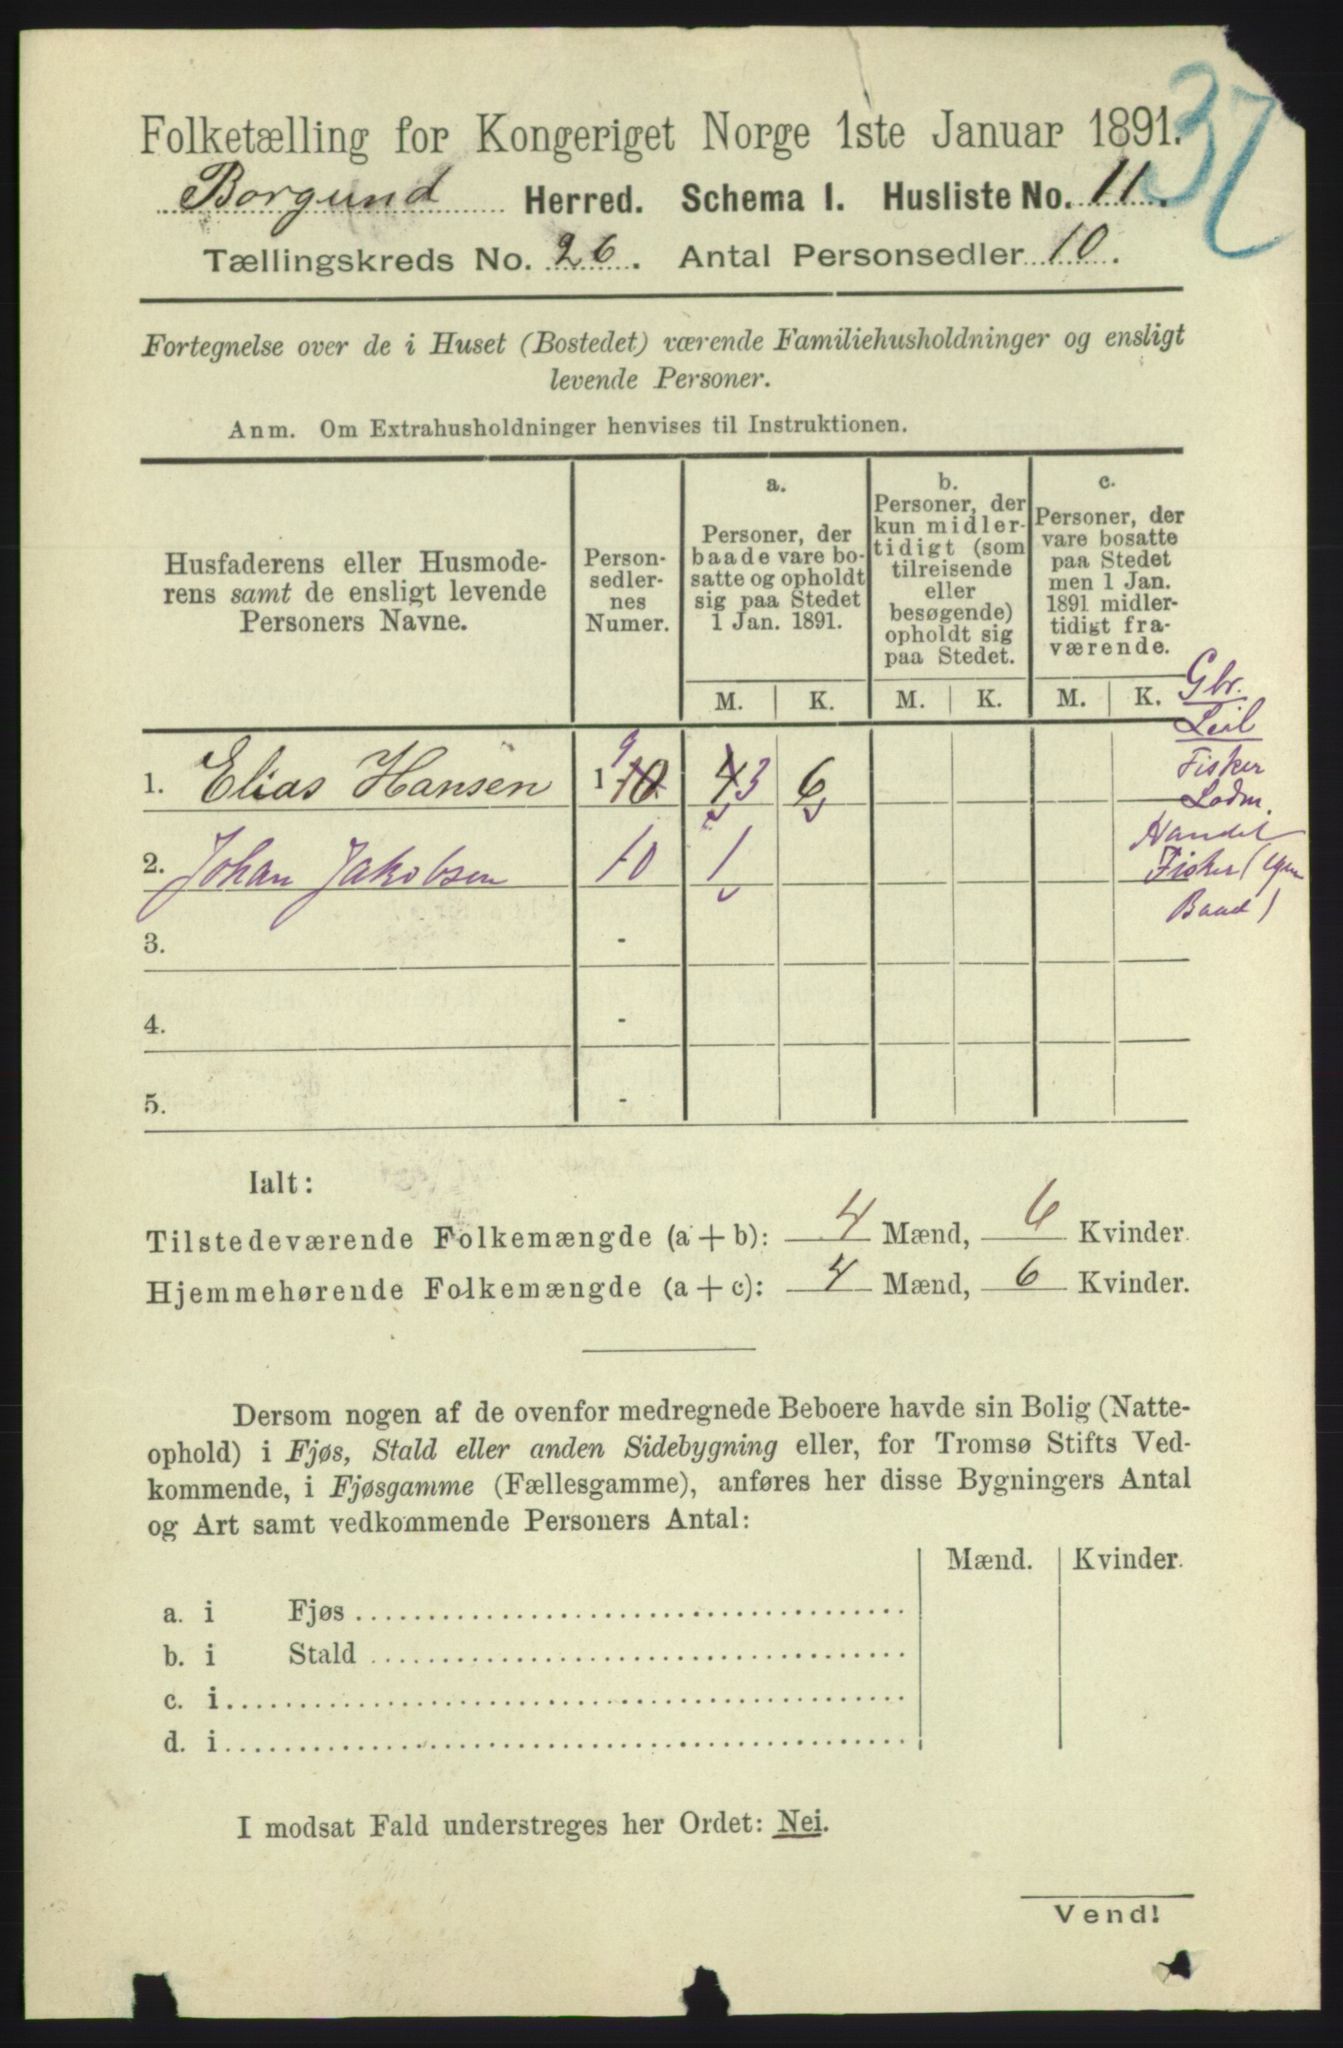 37
Folketælling for Kongeriget Norge 1ste Januar 1891.
Borgund Herred. Schema I. Husliste No. 11.
Tællingskreds No. 26. Antal Personsedler 10.
Fortegnelse over de i Huset (Bostedet) værende Familiehusholdninger og ensligt
levende Personer.
Anm. Om Extrahusholdninger henvises til Instruktionen.
Husfaderens eller Husmode-
rens samt de ensligt levende
Personers Navne.
Person-
sedler-
nes
Numer.
a.
Personer, der
baade vare bo-
satte og opholdt
sig paa Stedet
1 Jan. 1891.
b.
Personer, der
kun midler-
tidigt (som
tilreisende
eller
besøgende)
opholdt sig
paa Stedet.
c.
Personer, der
vare bosatte
paa Stedet
men 1 Jan.
1891 midler-
tidigt fra-
værende.
M. K. M. K. M. K.
Gbr.
Leil
Fisker
Lodm.
1. Elias Hansen 1-10 9 4 3 6
Handel
2. Johan Jakobsen 10 1 Fisker (egen
Baad)
3. -
4. -
5. -
Ialt:
Tilstedeværende Folkemængde (a + b): 4 Mænd, 6 Kvinder.
Hjemmehørende Folkemængde (a + c): 4 Mænd, 6 Kvinder.
Dersom nogen af de ovenfor medregnede Beboere havde sin Bolig (Natte-
ophold) i Fjøs, Stald eller anden Sidebygning eller, for Tromsø Stifts Ved-
kommende, i Fjøsgamme (Fællesgamme), anføres her disse Bygningers Antal
og Art samt vedkommende Personers Antal:
Mænd. Kvinder.
a. i Fjøs
b. i Stald
c. i
d. i
I modsat Fald understreges her Ordet: Nei.
Vend!